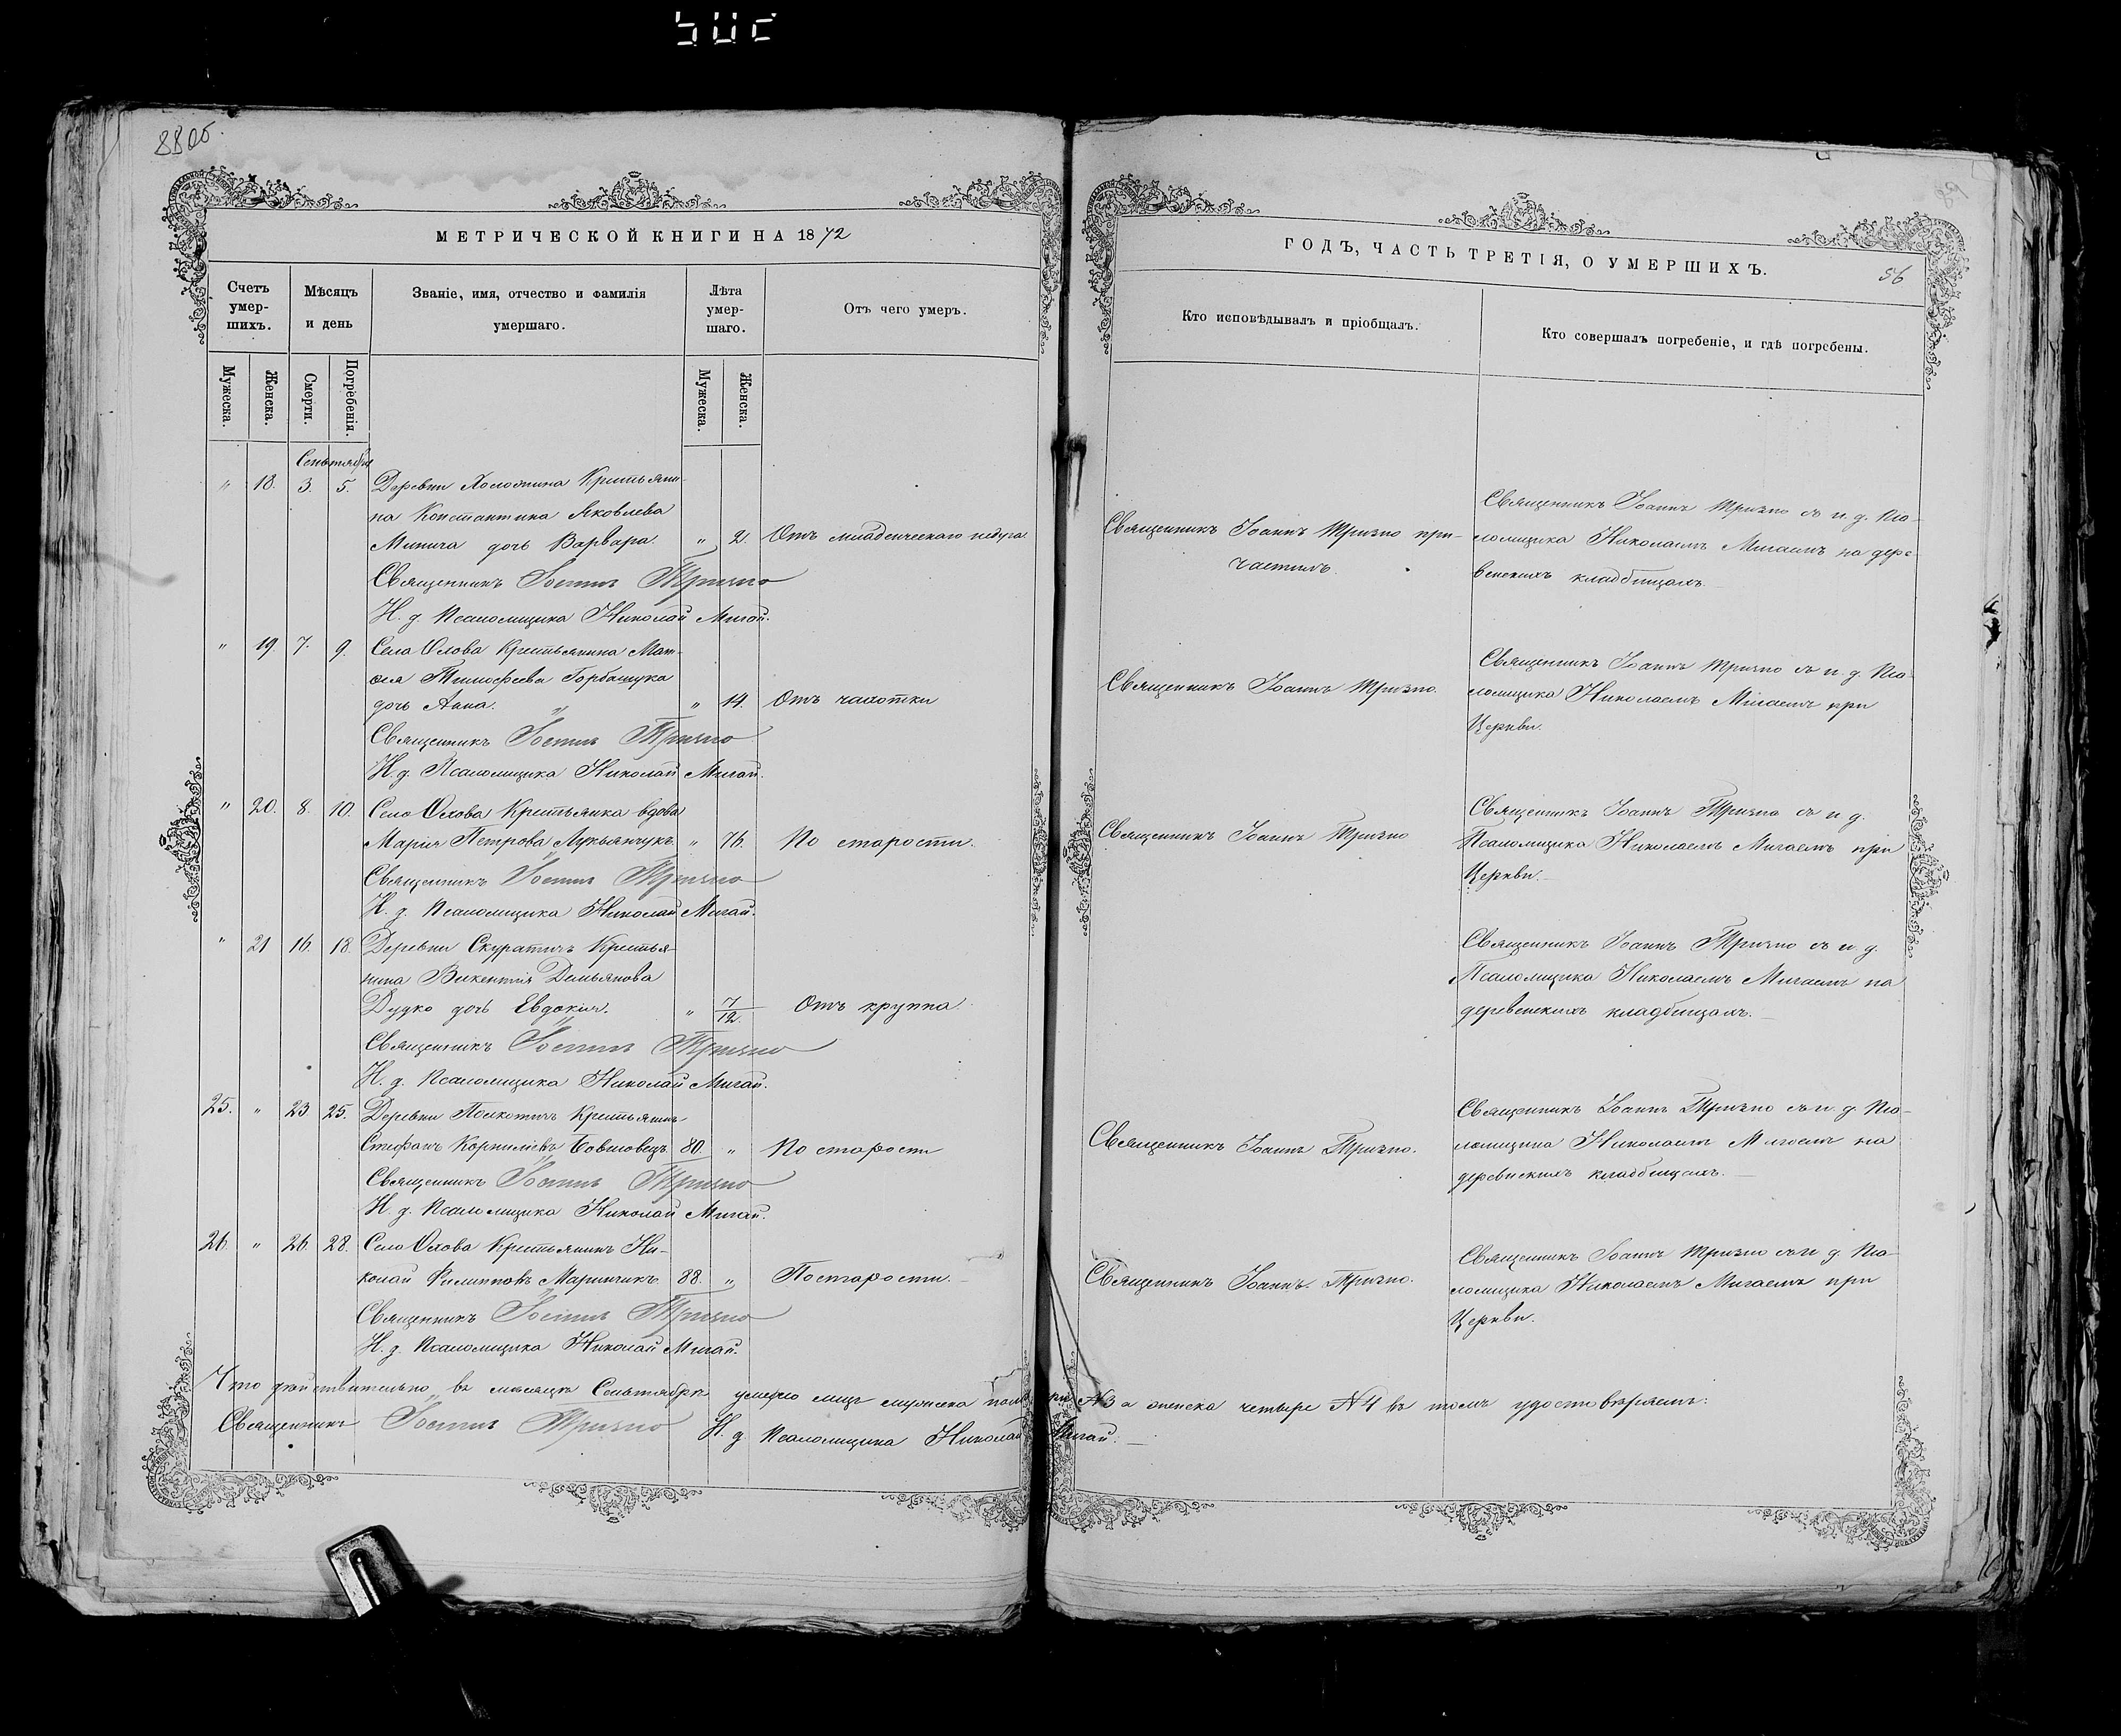 88об.
МЕТРИЧЕСКОЙ КНИГИ НА 1872
Счетъ умер-шихъ.
Мѣсяцъ и день
Званіе, имя, отчество и фамилія умершаго.
Лѣта умер-шаго.
Отъ чего умеръ.
Мужеска.
Женска.
Смерти.
Погребенія.
Мужеска.
Женска.
Сентября
" 18. 3. 5. Деревни Холожина Крестьяни-
на Константина Яковлева
Минича дочь Варвара. " 2. Отъ младенческаго недуга.
Священникъ Іоаннъ Тризно
И. д. Псаломщика Николай Мигай.
" 19 7. 9. Села Олова Крестьянина Мат-
ѳея Тимофеева Горбацука
дочь Анна. " 14. Отъ чахотки
Священникъ Іоаннъ Тризно
И. д. Псаломщика Николай Мигай.
" 20. 8. 10. Села Охова Крестьянка вдова
Марія Петрова Лукьянчукъ " 76. По старости.
Священникъ Іоаннъ Тризно
И. д. Псаломщика Николай Мигай.
" 21 16. 18. Деревни Скуратичъ Крестья-
нина Викентія Демьянова
Дудко дочь Евдокія. " 7/12. Отъ круппа.
Священникъ Іоаннъ Тризно
И. д. Псаломщика Николай Мигай.
25. " 23 25. Деревни Полкотичъ Крестьянинъ
Стефанъ Корниліевъ 80. " По старости
Священникъ Іоаннъ Тризно
И. д. Псаломщика Николай Мигай.
26. " 26. 28. Села Охова Крестьянинъ Ни-
колай Филипповъ Маринчикъ 88. " По старости.
Священникъ Іоаннъ Тризно
И. д. Псаломщика Николай Мигай.
Что дѣйствительно въ мѣсяцѣ Сентябрѣ умерло лицъ мужеска пола № а женска четыре № 4 въ томъ удостовѣряемъ:
Священникъ Іоаннъ Тризно И. д. Псаломщика Николай Мигай.
89
ГОДЪ, ЧАСТЬ ТРЕТІЯ, О УМЕРШИХЪ.
56
Кто исповѣдывалъ и пріобщалъ.
Кто совершалъ погребеніе, и гдѣ погребены.
Священникъ Іоаннъ Тризно при-
частилъ.
Священникъ Іоаннъ Тризно съ и. д. Пса-
ломщика Николаемъ Мигаемъ на дере-
венскихъ кладбищахъ.
Священникъ Іоаннъ Тризно.
Священникъ Іоаннъ Тризно съ и. д. Пса-
ломщика Николаемъ Мигаемъ при
Церкви.
Священникъ Іоаннъ Тризно
Священникъ Іоаннъ Тризно съ и. д.
Псаломщика Николаемъ Мигаемъ при
Церкви.
Священникъ Іоаннъ Тризно съ и. д.
Псаломщика Николаемъ Мигаемъ на
деревенскихъ кладбищахъ.
Священникъ Іоаннъ Тризно.
Священникъ Іоаннъ Тризно съ и. д. Пса-
ломщика Николаемъ Мигаемъ на
деревенскихъ кладбищахъ.
Священникъ Іоаннъ Тризно.
Священникъ Іоаннъ Тризно съ и. д. Пса-
ломщика Николаемъ Мигаемъ при
Церкви.